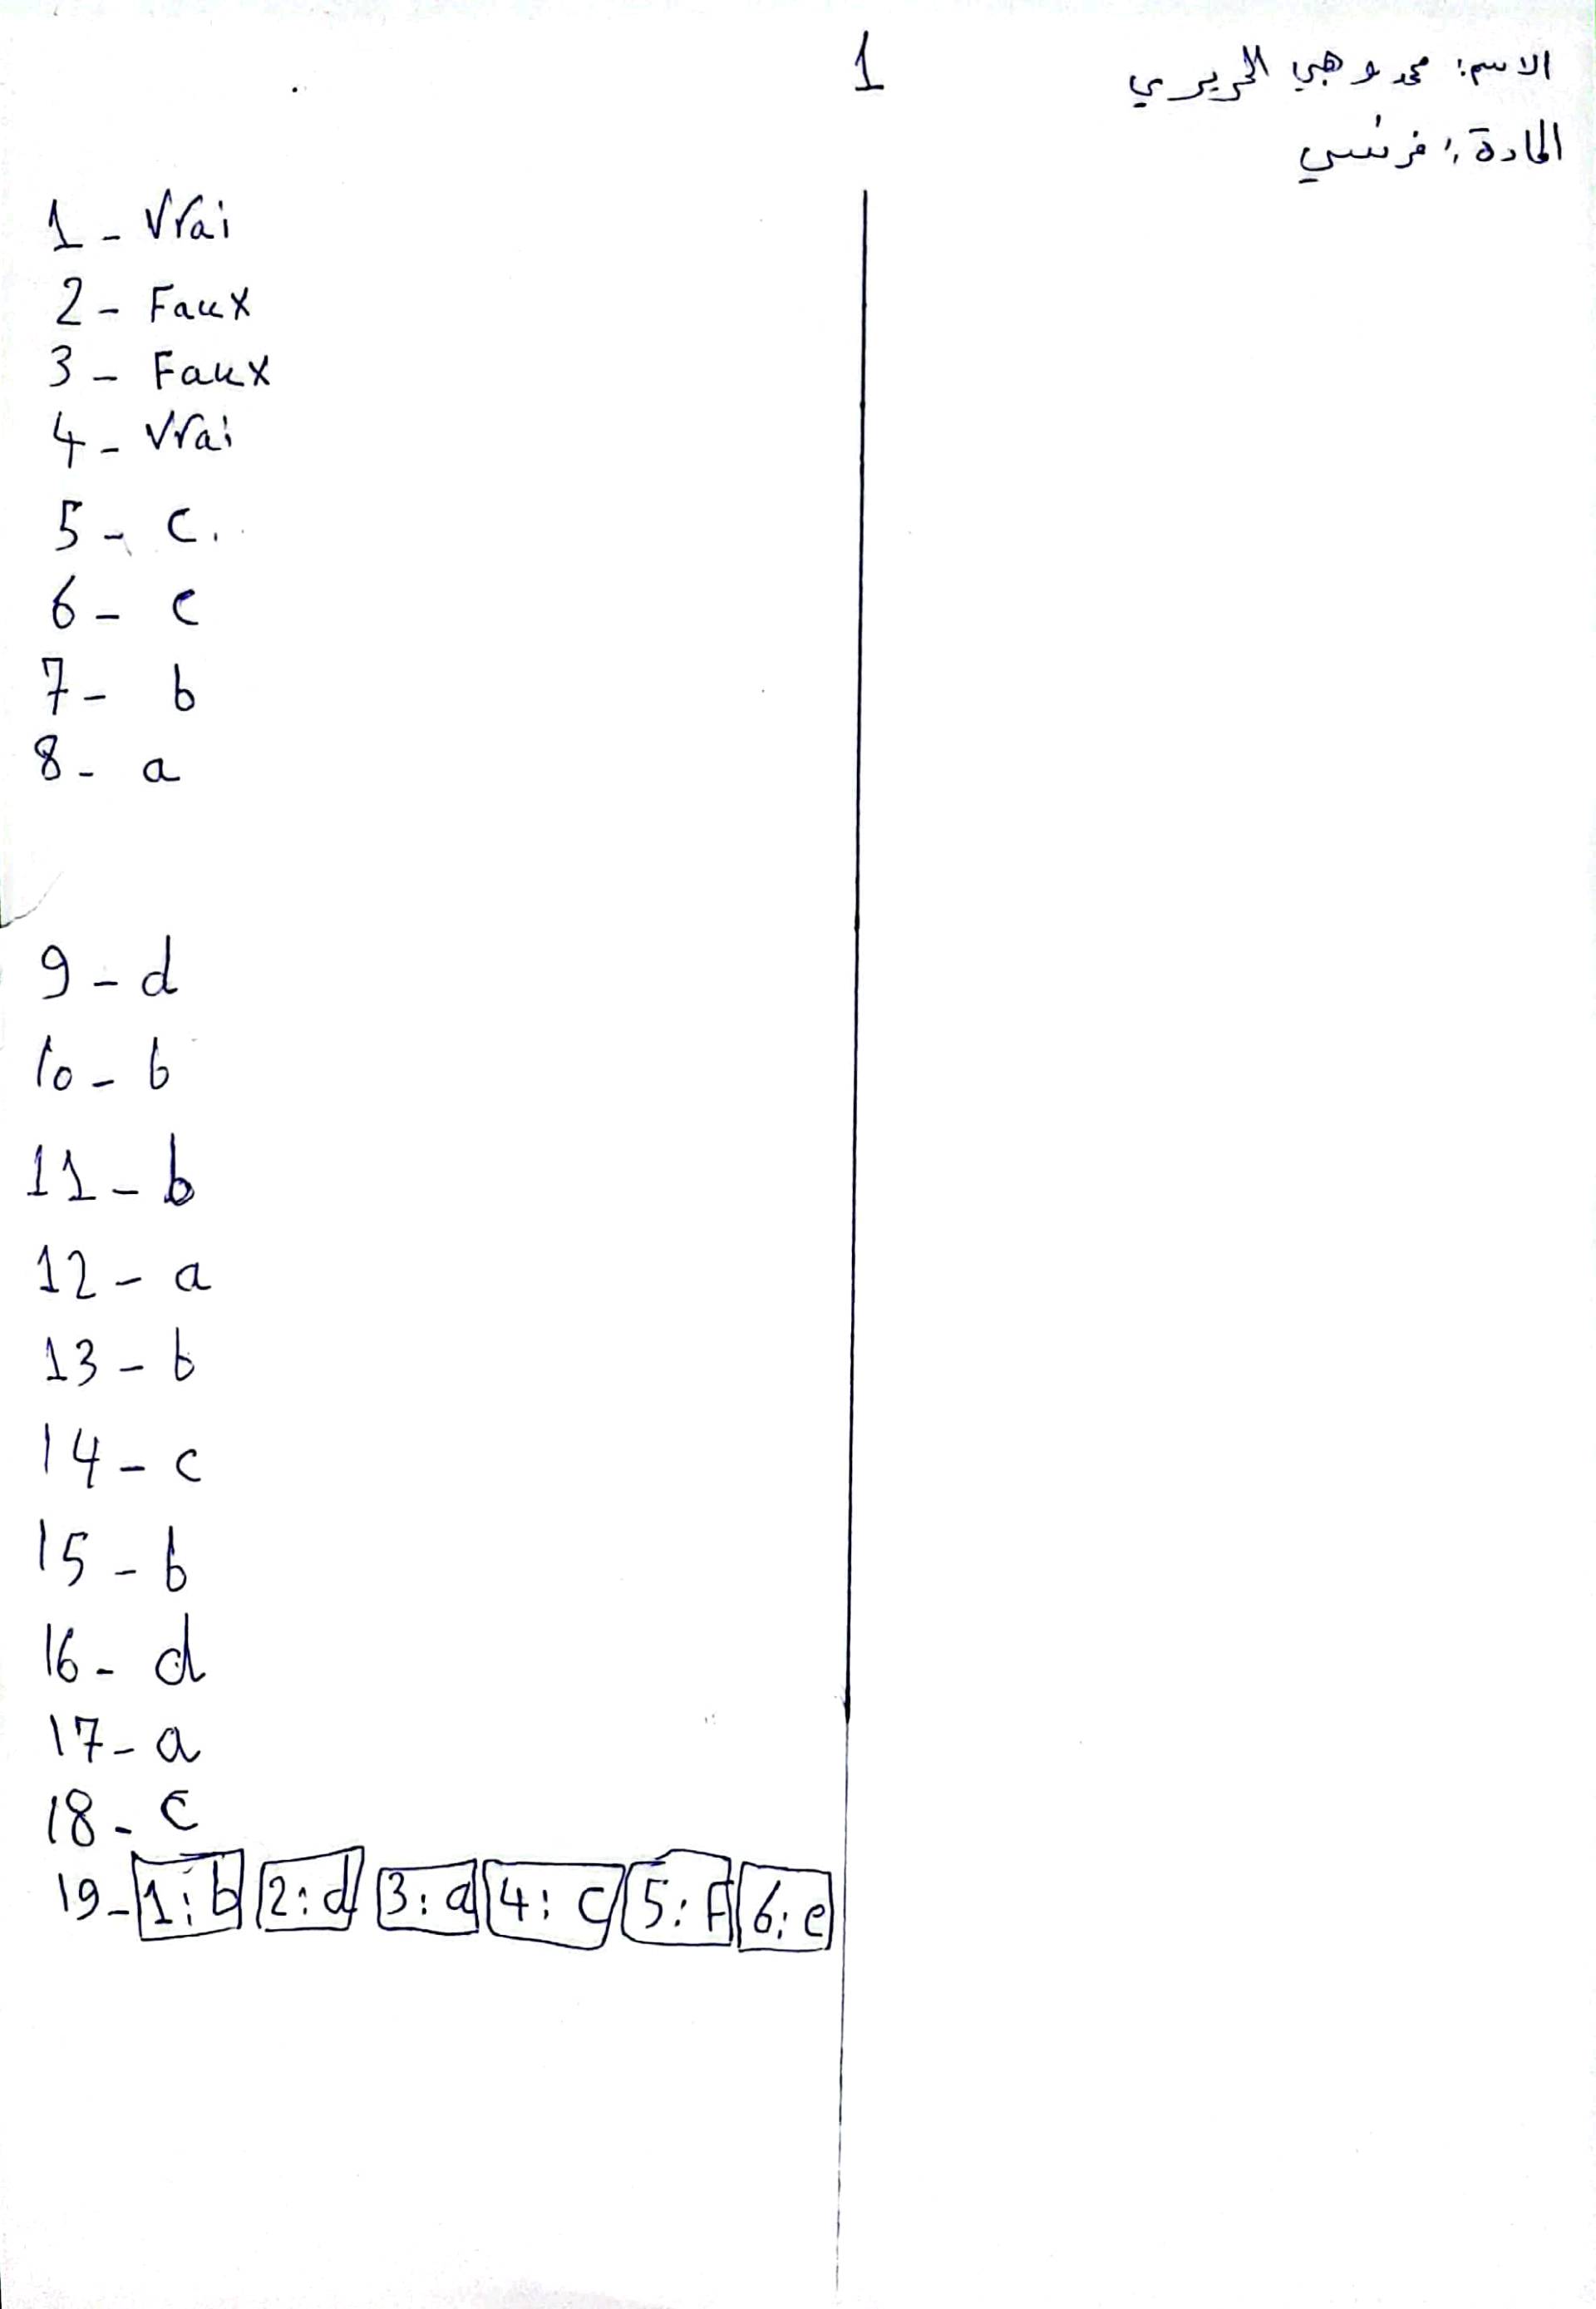 الاسم: محمد وهبي الحريري
1
المادة: فرنسي
1 - Vrai
2 - Faux
3 - Faux
4 - Vrai
5 - c.
6 - c
7 - b
8 - a
9 - d
10 - b
11 - b
12 - a
13 - b
14 - c
15 - b
16 - d
17 - a
18 - c
19 - 1: b 2: d 3: a 4: c 5: F 6: e